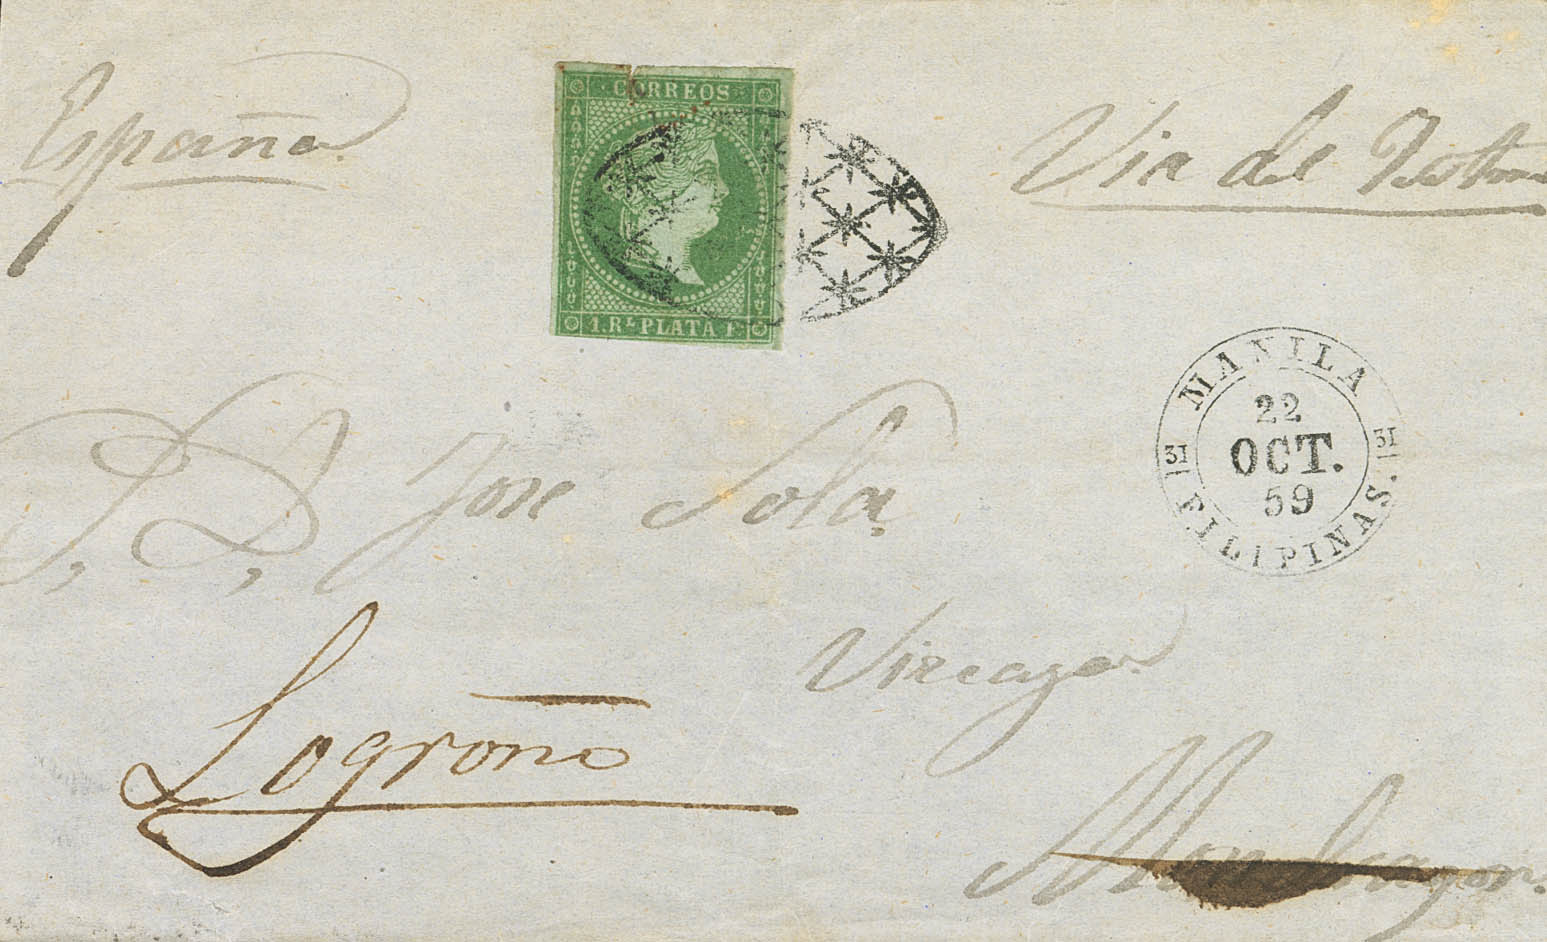 España
CORREOS
1. Rˡ PLATA F.
Via del
MANILA
22
OCT.
59
31 31
FILIPINAS.
S. D. Jose Sola
Vizcaya
Logroño
Mondragon.